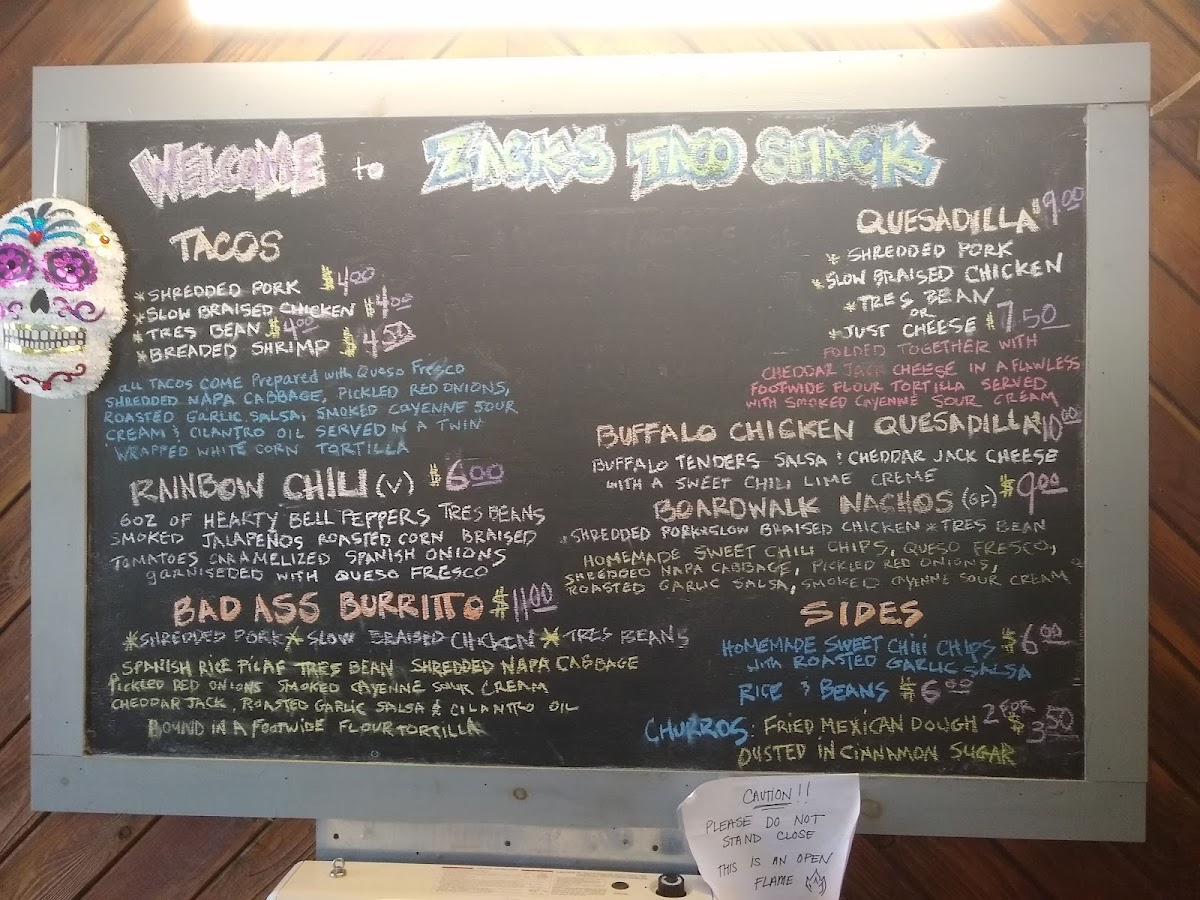 WELCOME to ZACK'S TACO SHACK
TACOS
*SHREDDED PORK $4.00
*SLOW BRAISED CHICKEN $4.00
*TRES BEAN $4.00
*BREADED SHRIMP $4.50
all TACOS COME Prepared with Queso Fresco
SHREDDED NAPA CABBAGE, PICKLED RED ONIONS,
ROASTED GARLIC SALSA, SMOKED CAYENNE SOUR
CREAM & CILANTRO OIL SERVED IN A TWIN
WRAPPED WHITE CORN TORTILLA
RAINBOW CHILI (V) $6.00
6OZ OF HEARTY BELL PEPPERS TRES BEANS
SMOKED JALAPEÑOS ROASTED CORN BRAISED
TOMATOES CARAMELIZED SPANISH ONIONS
GARNISEDED WITH QUESO FRESCO
BAD ASS BURRITTO $11.00
*SHREDDED PORK * SLOW BRAISED CHICKEN * TRES BEANS
SPANISH RICE PILAF TRES BEAN SHREDDED NAPA CABBAGE
PICKLED RED ONIONS SMOKED CAYENNE SOUR CREAM
CHEDDAR JACK, ROASTED GARLIC SALSA & CILANTRO OIL
BOUND IN A FOOTWIDE FLOUR TORTILLA
QUESADILLA $9.00
* SHREDDED PORK
*SLOW BRAISED CHICKEN
*TRES BEAN
OR
*JUST CHEESE $7.50
FOLDED TOGETHER WITH
CHEDDAR JACK CHEESE IN A FLAWLESS
FOOTWIDE FLOUR TORTILLA SERVED
WITH SMOKED CAYENNE SOUR CREAM
BUFFALO CHICKEN QUESADILLA $10.00
BUFFALO TENDERS SALSA & CHEDDAR JACK CHEESE
WITH A SWEET CHILI LIME CREME
BOARDWALK NACHOS (GF) $9.00
*SHREDDED PORK*SLOW BRAISED CHICKEN*TRES BEAN
HOMEMADE SWEET CHILI CHIPS, QUESO FRESCO,
SHREDDED NAPA CABBAGE, PICKLED RED ONIONS,
ROASTED GARLIC SALSA, SMOKED CAYENNE SOUR CREAM
SIDES
HOMEMADE SWEET CHILI CHIPS $6.00
WITH ROASTED GARLIC SALSA
RICE & BEANS $6.00
CHURROS: FRIED MEXICAN DOUGH 2 FOR $3.50
DUSTED IN CINNAMON SUGAR
CAUTION!!
PLEASE DO NOT
STAND CLOSE
THIS IS AN OPEN
FLAME